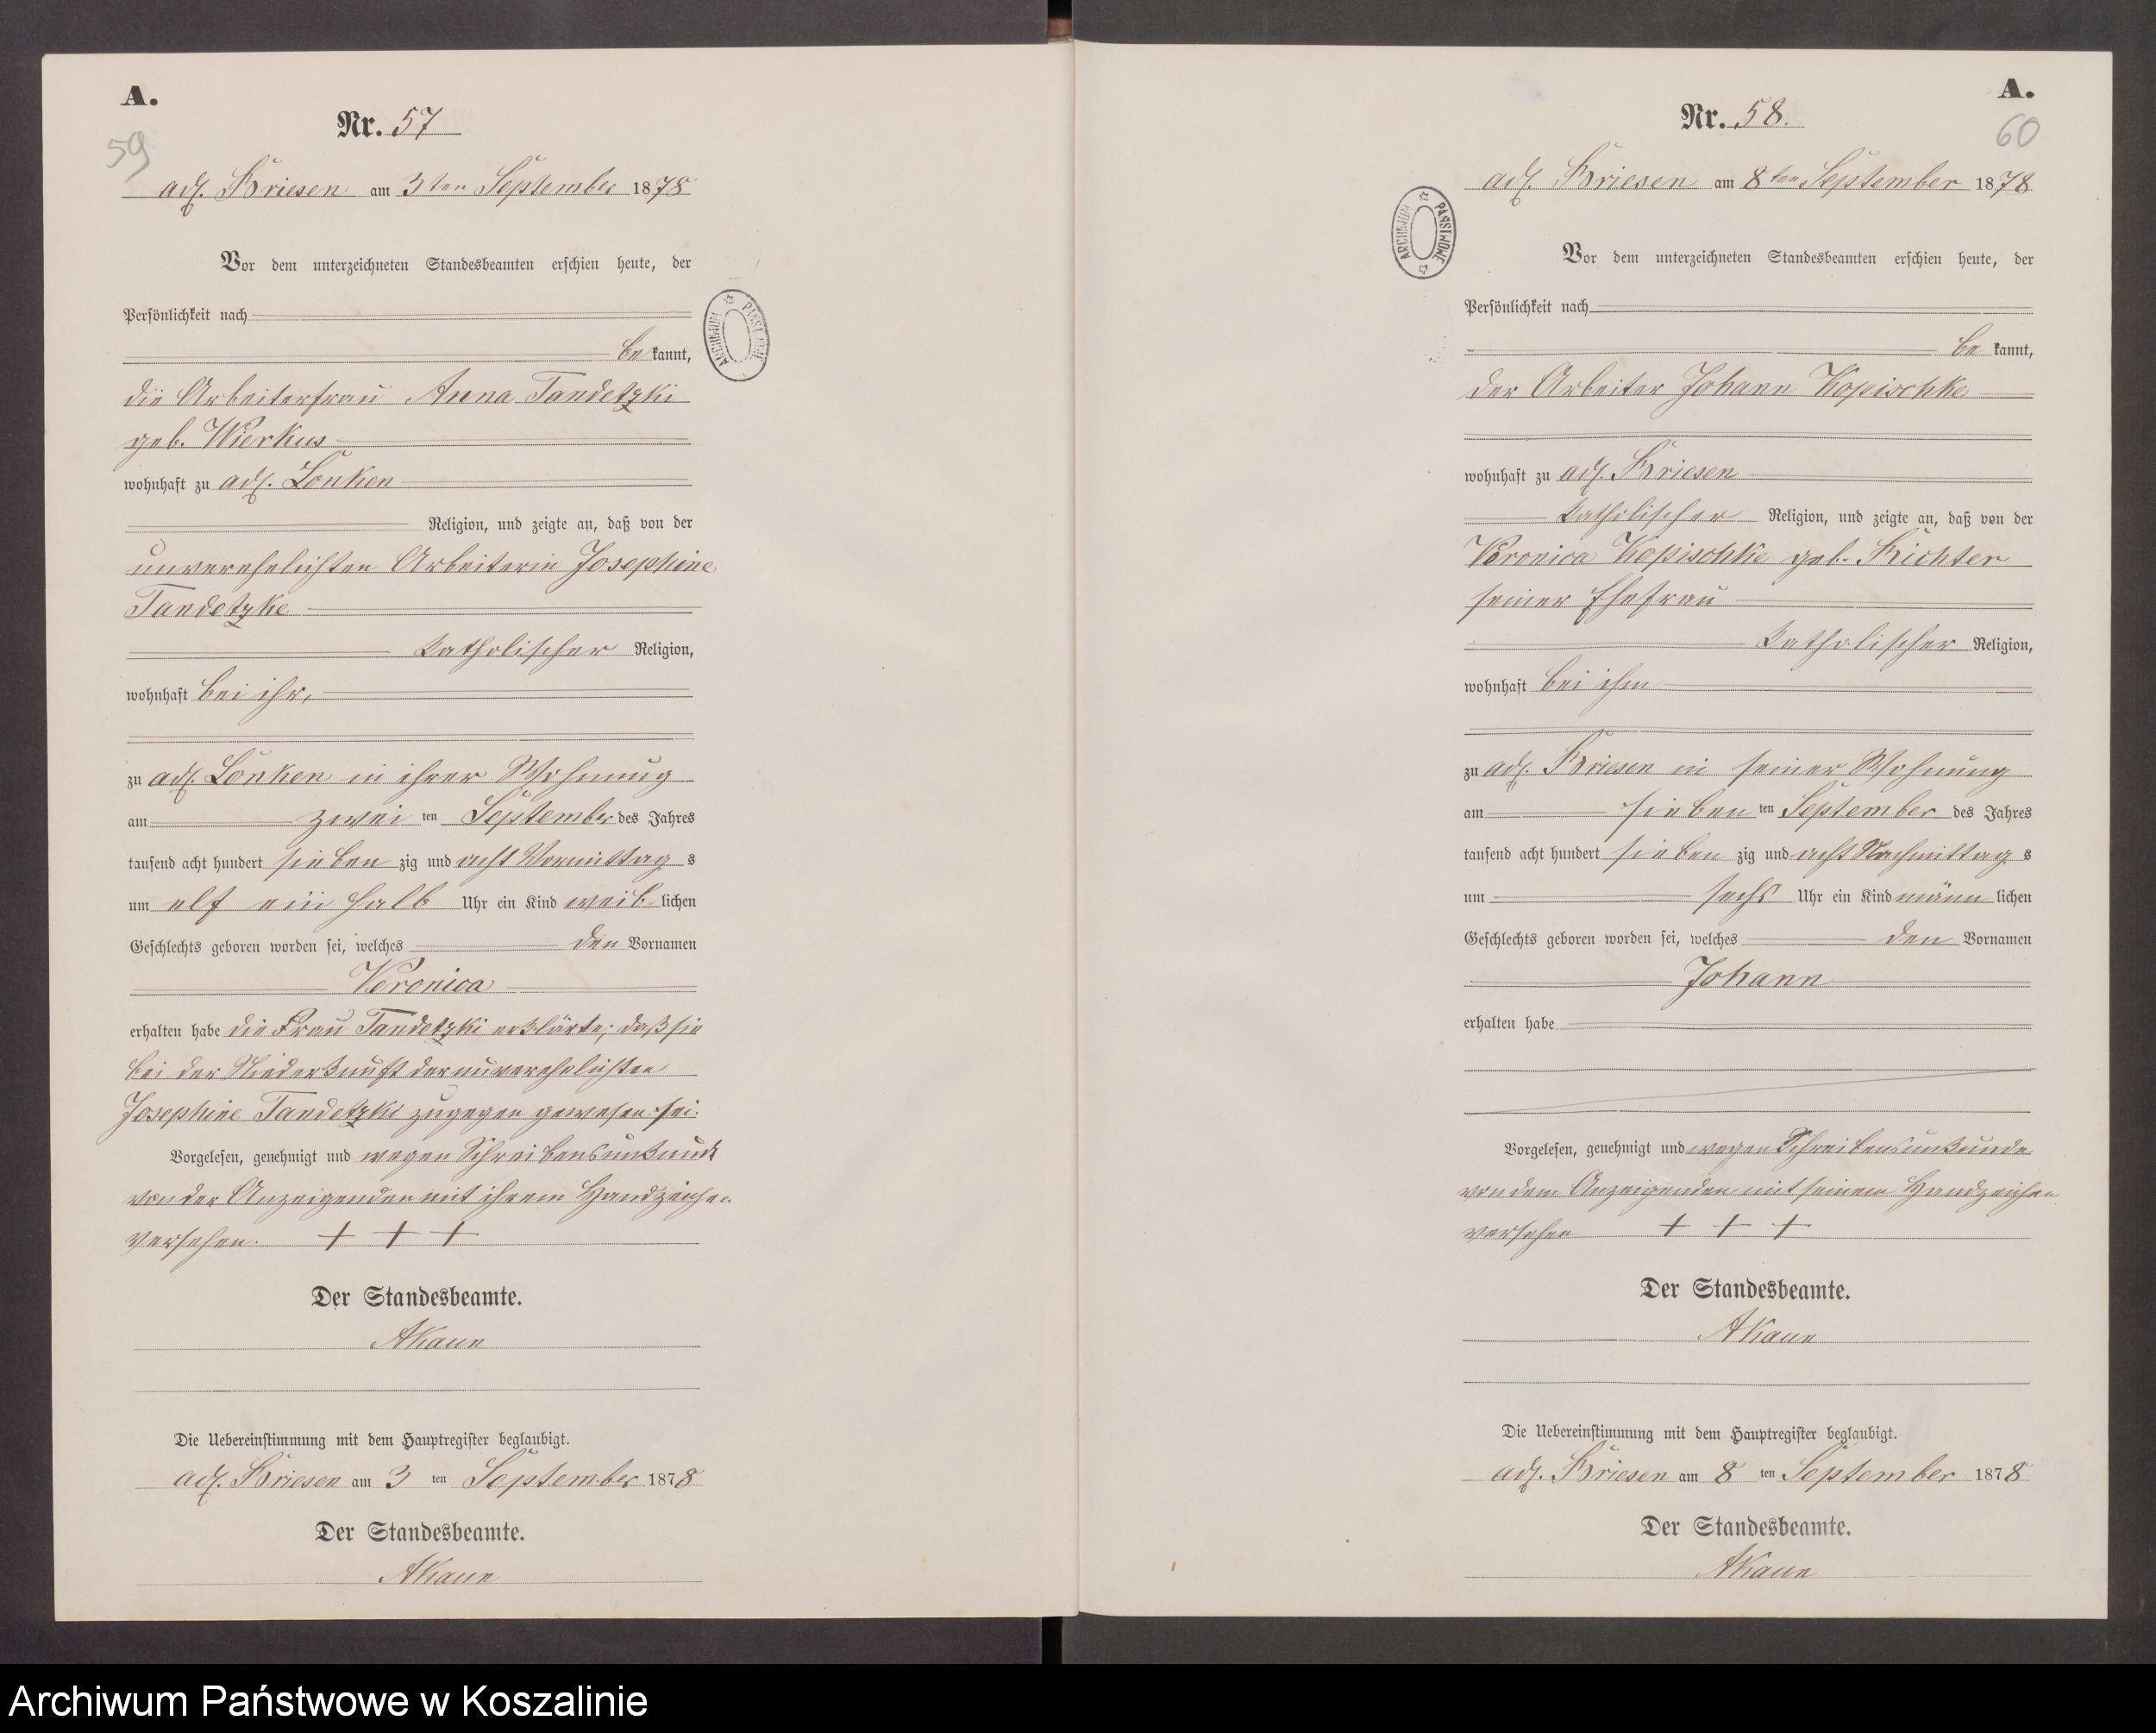 A.
59
Nr. 57
adl. Briesen am 3ten September 1878
Vor dem unterzeichneten Standesbeamten erschien heute, der
Persönlichkeit nach
be kannt,
die Arbeiterfrau Anna Tandetzki
geb. Wierkus
wohnhaft zu adl. Lonken
Religion, und zeigte an, daß von der
unverehelichten Arbeiterin Josephine
Tandetzke
katholischer Religion,
wohnhaft bei ihr,
zu adl. Lonken in ihrer Wohnung
am zwei ten September des Jahres
tausend acht hundert sieben zig und acht Vormittag s
um elf ein halb Uhr ein Kind weib lichen
Geschlechts geboren worden sei, welches den Vornamen
Veronica
erhalten habe die Frau Tandetzki erklärte, daß sie
bei der Niederkunft der unverehelichten
Josephine Tandetzki zugegen gewesen sei.
Vorgelesen, genehmigt und wegen Schreibensunkunde
von der Anzeigenden mit ihrem Handzeichen
versehen. + + +
Der Standesbeamte.
AKaun
Die Uebereinstimmung mit dem Hauptregister beglaubigt.
adl. Briesen am 3 ten September 1878
Der Standesbeamte.
AKaun
ARCHIWUM PAŃSTWOWE
A.
60
Nr. 58.
adl. Briesen am 8ten September 1878
Vor dem unterzeichneten Standesbeamten erschien heute, der
Persönlichkeit nach
be kannt,
der Arbeiter Johann Kopischke
wohnhaft zu adl. Briesen
katholischer Religion, und zeigte an, daß von der
Veronica Kopischke geb. Richter
seiner Ehefrau
katholischer Religion,
wohnhaft bei ihm
zu adl. Briesen in seiner Wohnung
am sieben ten September des Jahres
tausend acht hundert sieben zig und acht Nachmittag s
um sechs Uhr ein Kind männ lichen
Geschlechts geboren worden sei, welches den Vornamen
Johann
erhalten habe
Vorgelesen, genehmigt und wegen Schreibensunkunde
von dem Anzeigenden mit seinem Handzeichen
versehen + + +
Der Standesbeamte.
AKaun
Die Uebereinstimmung mit dem Hauptregister beglaubigt.
adl. Briesen am 8 ten September 1878
Der Standesbeamte.
AKaun
ARCHIWUM PAŃSTWOWE
Archiwum Państwowe w Koszalinie